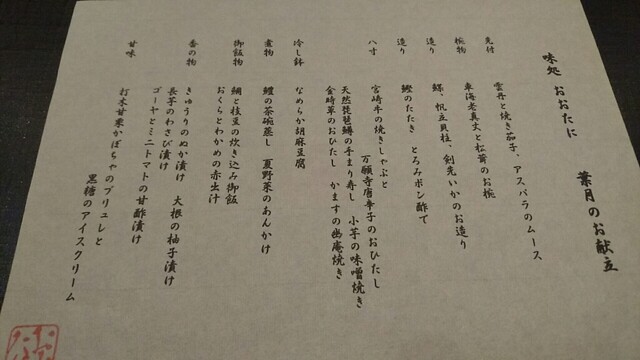 味処 おおたに 葉月のお献立
先付 雲丹と焼き茄子、アスパラのムース
椀物 車海老真丈と松茸のお椀
造り 鰈、帆立貝柱、剣先いかのお造り
造り 鰹のたたき とろみポン酢で
八寸 宮崎牛の焼きしゃぶと
万願寺唐辛子のおひたし
天然琵琶鱒の手まり寿し 小芋の味噌焼き
金時草のおひたし かますの幽庵焼き
冷し鉢 なめらか胡麻豆腐
煮物 鱧の茶碗蒸し 夏野菜のあんかけ
御飯物 鯛と枝豆の炊き込み御飯
おくらとわかめの赤出汁
香の物 きゅうりのぬか漬け 大根の柚子漬け
長芋のわさび漬け
ゴーヤとミニトマトの甘酢漬け
甘味 打木甘栗かぼちゃのブリュレと
黒糖のアイスクリーム